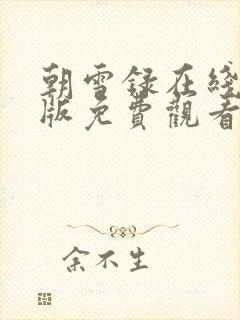 朝雪録在綫
版免費觀看
余不生